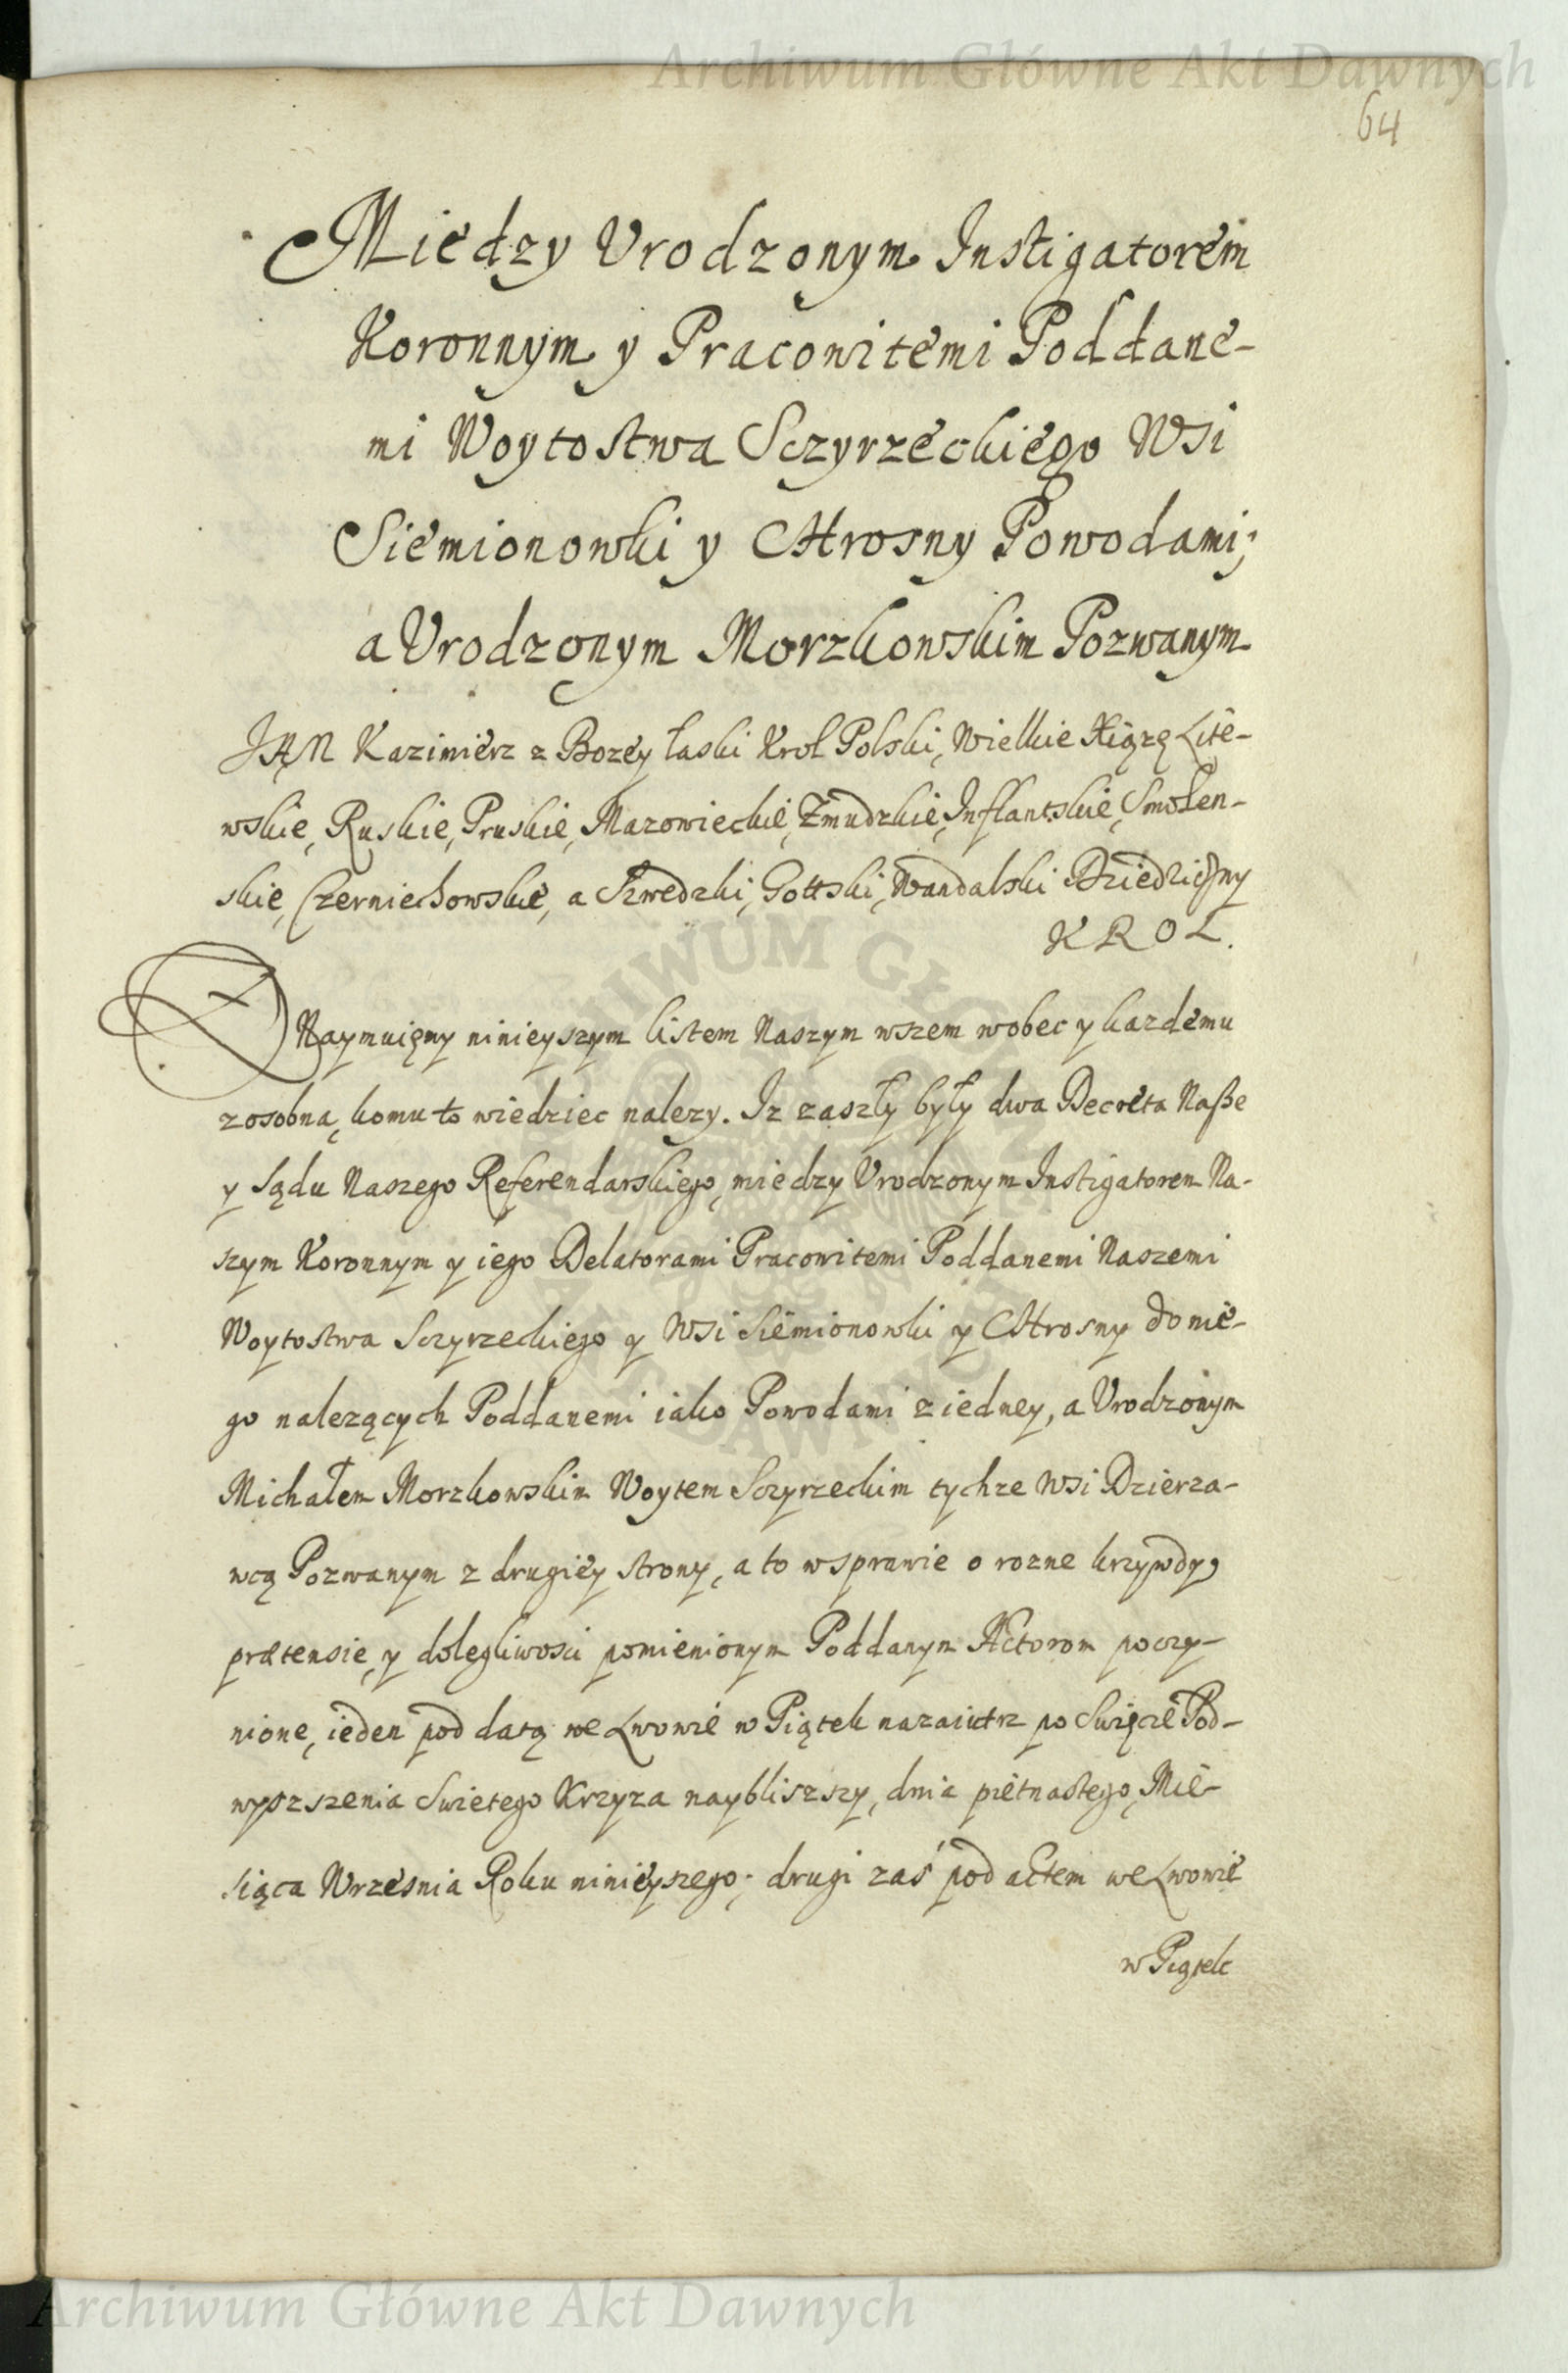 Archiwum Główne Akt Dawnych
64
Miedzy Vrodzonym Instigatorem
Koronnym y Pracowitemi Poddane-
mi Woytostwa Sczyrzeckiego Wsi
Siemionowki y CHrosny Powodami;
a Vrodzonym Morzkowskim Pozwanym
JAN Kazimierz z Bozey łaski Krol Polski, Wielkie Xiązę Lite-
wskie, Ruskie, Pruskie, Mazowieckie, Zmudzkie, Inflantskie, Smolen-
skie, Czerniechowskie, a Szwedzki, Gottski, Wandalski Dziedziczny
KROL.
ZNaymuięmy ninieyszym listem Naszym wszem wobec y kazdemu
zosobna, komu to wiedziec nalezy. Iz zaszły były dwa Decreta Naße
y Sądu Naszego Referendarskiego, miedzy Vrodzonym Instigatorem Na-
szym Koronnym y iego Delatorami Pracowitemi Poddanemi Naszemi
Woytostwa Sczyrzeckiego y Wsi Siemionowki y CHrosny do nie-
go nalezących Poddanemi iako Powodami z iedney, a Vrodzonym
Michałem Morzkowskim Woytem Sczyrzeckim tychze Wsi Dzierza-
wcą Pozwanym z drugiey strony, a to wsprawie o rozne krzywdy,
prætensie, y dolegliwosci pomienionym Poddanym Actorom poczy-
nione, ieden pod datą we Lwowie w Piątek nazaiutrz po Swięcie Pod-
wyszszenia Swietego Krzyza naybliszszy, dnia pietnastego, Mie-
siąca Wrzesnia Roku ninieyszego; drugi zaś pod actem we Lwowie
w Piątek
Archiwum Główne Akt Dawnych